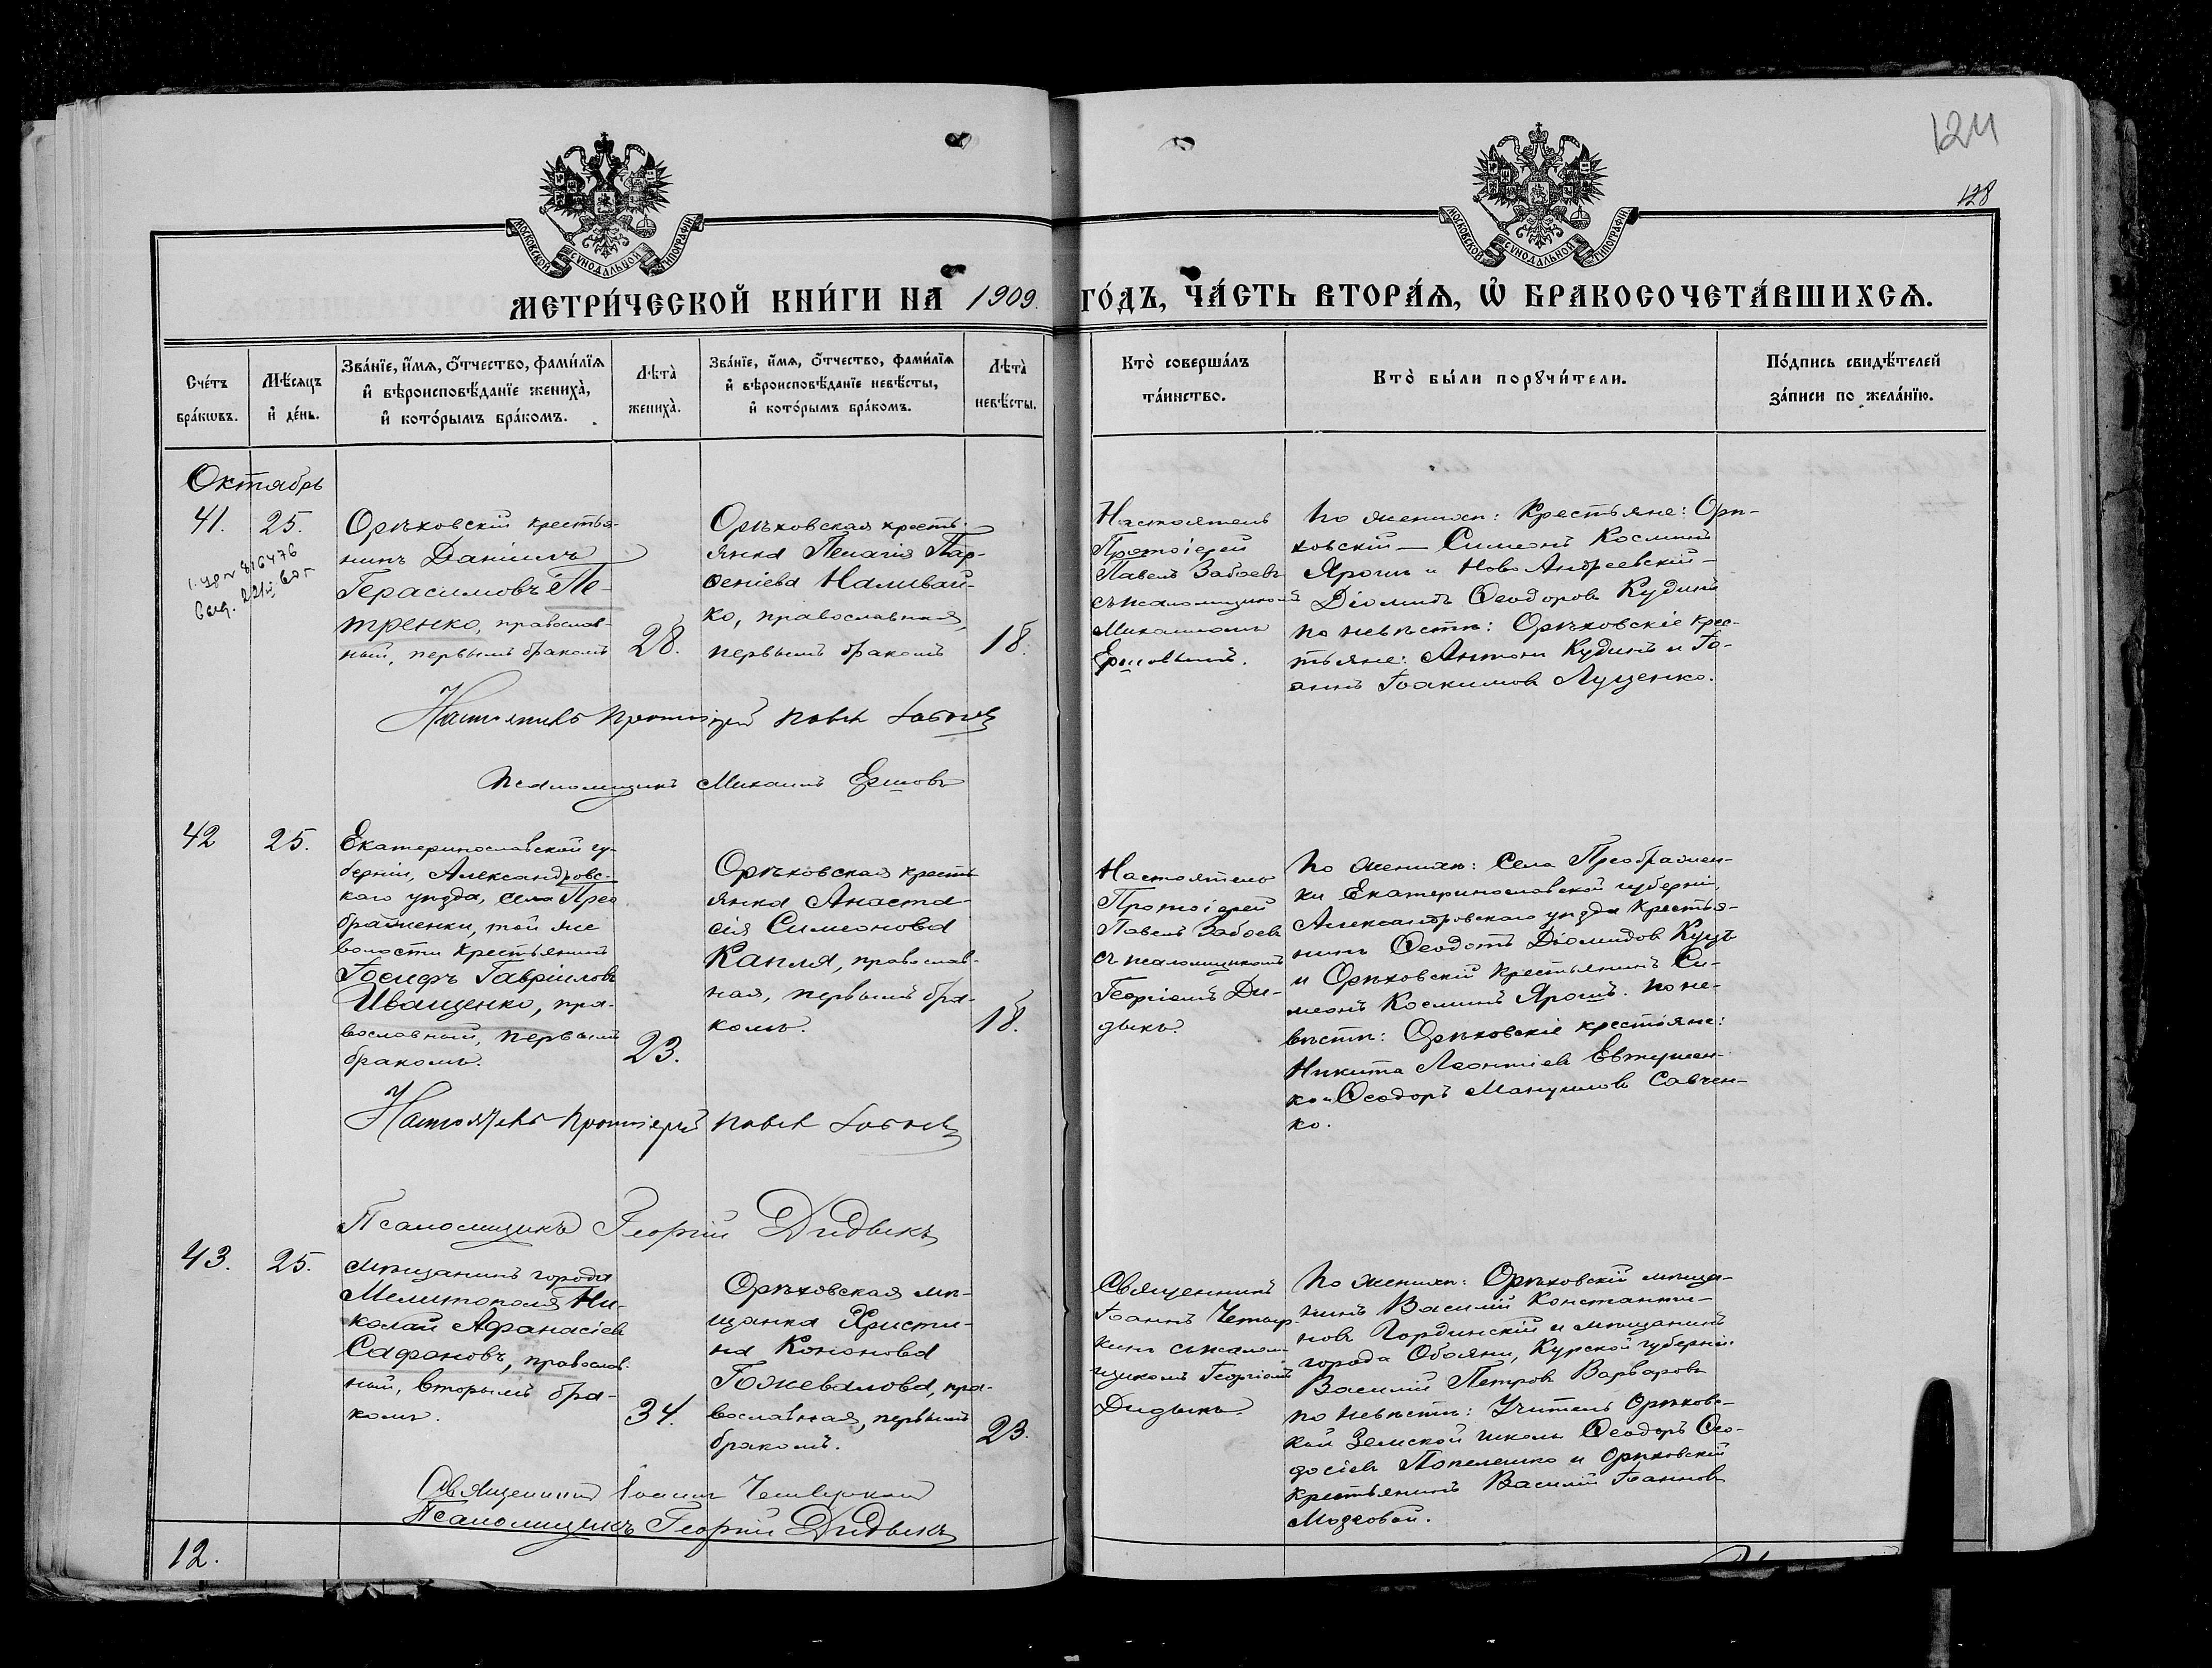 124
128
МОСКОВСКОЙ СѴНОДАЛЬНОЙ ТИПОГРАФІИ
МОСКОВСКОЙ СѴНОДАЛЬНОЙ ТИПОГРАФІИ
МЕТРИ́ЧЕСКОЙ КНИ́ГИ НА 1909. ГО́ДЪ, ЧА́СТЬ ВТОРА́Ѧ, Ѽ БРАКОСОЧЕТА́ВШИХСѦ.
Сче́тъ
бра́кѡвъ.
Мѣ́сяцъ
и҆ де́нь.
Зва́нїе, и҆́мѧ, ѻ҆́тчество, фами́лїѧ
и҆ вѣроисповѣ́данїе жениха̀,
и҆ кото́рымъ бра́комъ.
Лѣта̀
жениха̀.
Зва́нїе, и҆́мѧ, ѻ҆́тчество, фами́лїѧ
и҆ вѣроисповѣ́данїе невѣ́сты,
и҆ кото́рымъ бра́комъ.
Лѣта̀
невѣ́сты.
Кто̀ соверша́лъ
та́инство.
Кто̀ бы́ли порꙋчи́тели.
По́дпись свидѣ́телей
за́писи по жела́нїю.
Октябрь
41.
25.
Орѣховскій крестья-
нинъ Даніилъ
Герасимовъ Пе-
тренко, православ-
ный, первымъ бракомъ
28.
Орѣховская кресть-
янка Пелагія Пар-
ѳеніева Наливай-
ко, православная,
первымъ бракомъ
18.
Настоятель
Протоіерей
Павелъ Забаевъ
съ псаломщикомъ
Михаиломъ
Ершовымъ.
По женихѣ: Крестьяне: Орѣ-
ховскій — Симеонъ Косминъ
Ярошъ и НовоАндреевскій —
Діомидъ Ѳеодоровъ Кудинъ
по невѣстѣ: Орѣховскіе крес-
тьяне: Антонъ Кудинъ и Іо-
аннъ Іоакимовъ Луценко.
Настоятель Протоіерей Павелъ Забаевъ
Псаломщикъ Михаилъ Ершовъ
42
25.
Екатеринославской гу-
берніи, Александровс-
каго уѣзда, села Прео
браженки, той же
волости крестьянинъ
Іосифъ Гавріиловъ
Иващенко, пра-
вославный, первымъ
бракомъ.
23.
Орѣховская кресть
янка Анаста-
сія Симеонова
Капля, православ-
ная, первымъ бра-
комъ.
18.
Настоятель
Протоіерей
Павелъ Забаевъ
съ псаломщикомъ
Георгіемъ Ди-
дыкъ.
По женихѣ: Села Преображен-
ки Екатеринославской губерніи,
Александровскаго уѣзда крестья-
нинъ Ѳеодотъ Діомидовъ Куцъ
и Орѣховскій крестьянинъ Си-
меонъ Косминъ Ярошъ. По не-
вѣстѣ: Орѣховскіе крестьяне:
Никита Леонтіевъ Евтушен-
ко и Ѳеодоръ Мануиловъ Савчен-
ко.
Настоятель Протоіерей Павелъ Забаевъ
Псаломщикъ Георгій Дидыкъ
43.
25.
Мѣщанинъ города
Мелитополя Ни-
колай Аѳанасіевъ
Сафоновъ, православ-
ный, вторымъ бра-
комъ.
34.
Орѣховская мѣ-
щанка Христи-
на Кононова
Божевалова, пра-
вославная, первымъ
бракомъ.
23.
Священникъ
съ псалом-
щикомъ Георгіемъ
Дидыкъ.
По женихѣ: Орѣховскій мѣща-
нинъ Василій Константи-
новъ Гординскій и мѣщанинъ
города Обояни, Курской губерніи
Василій Петровъ Варваровъ
по невѣстѣ: Учитель Орѣховс-
кой Земской школы Ѳеодоръ Ѳео-
досіевъ Попелешко и Орѣховскій
крестьянинъ Василій Іоанновъ
Мозговой.
Священникъ Іоаннъ
Псаломщикъ Георгій Дидыкъ
12.